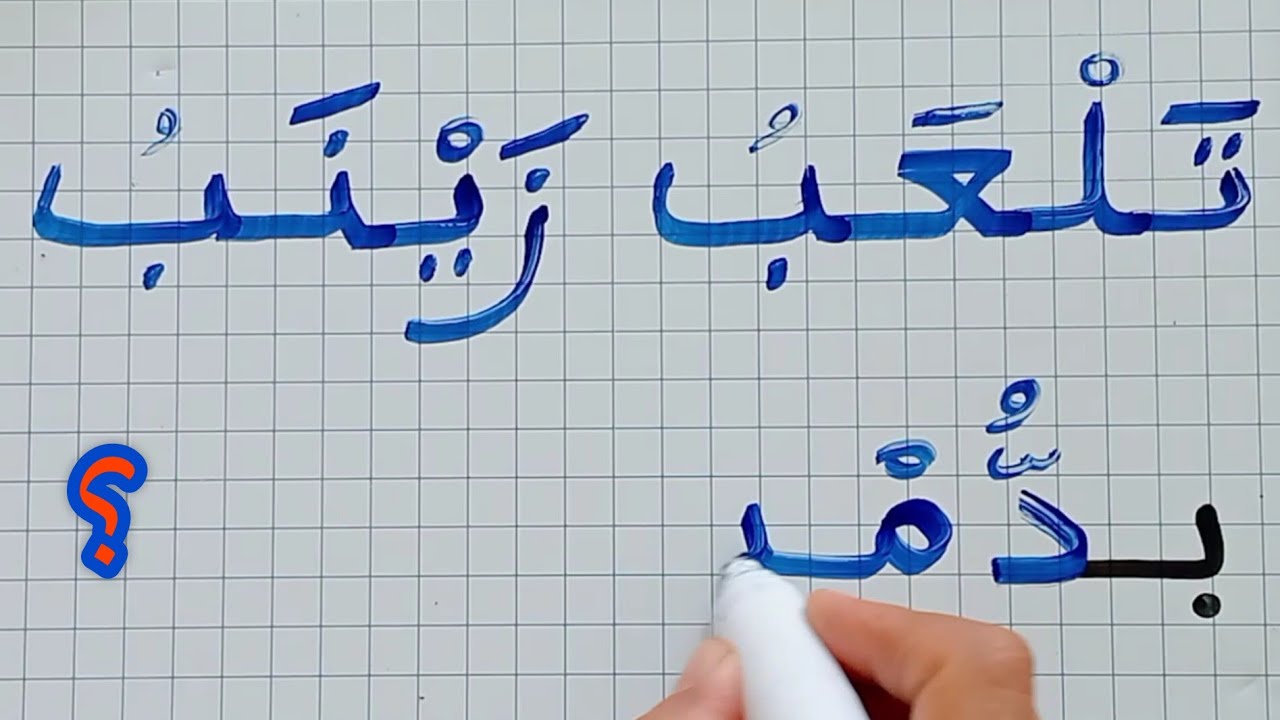 تَلْعَبُ زَيْنَبُ
بدُّمْـ ؟